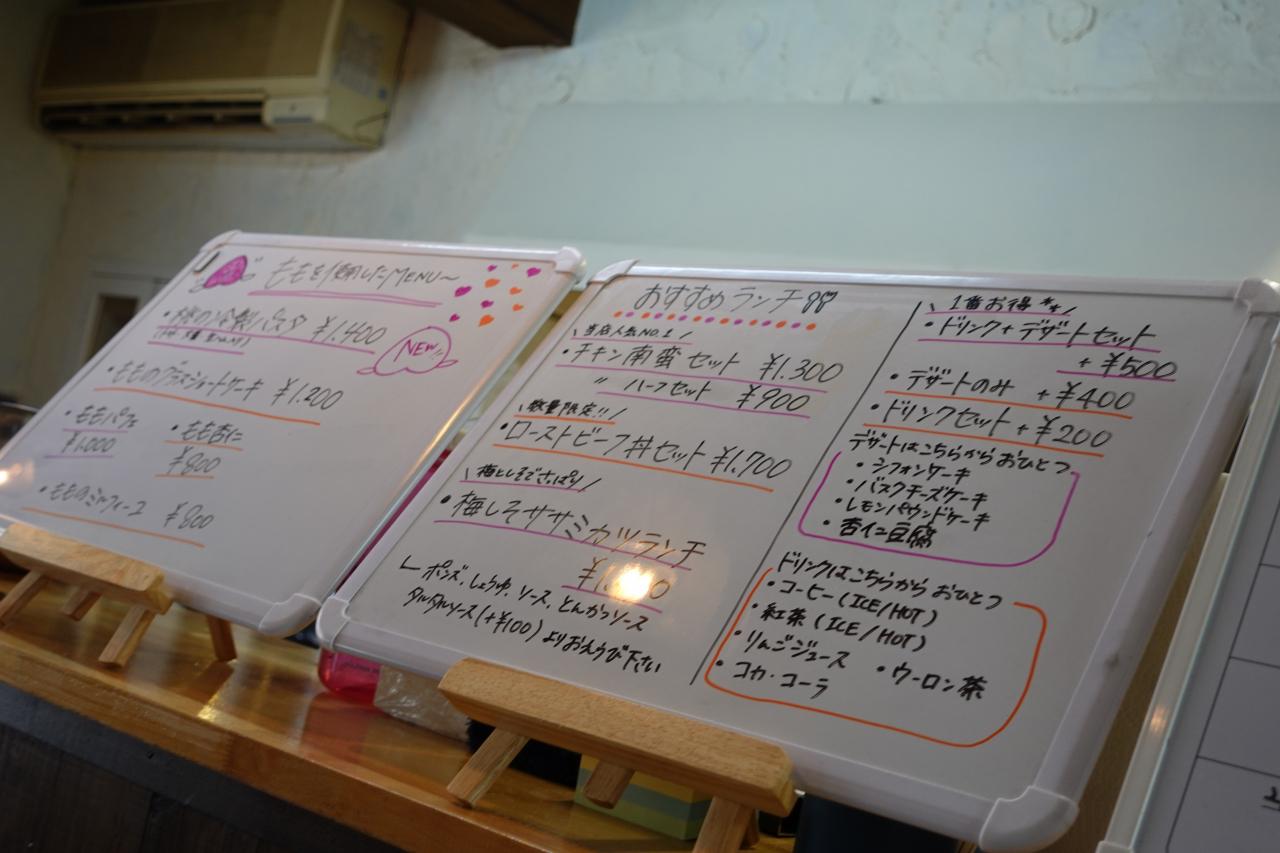 ももを使用したMENU〜
・桃の冷製パスタ ¥1,400
NEW!!
・もものグラスショートケーキ ¥1,200
・ももパフェ
¥1,000
・もも杏仁
¥800
・もものミルフィーユ ¥800
おすすめランチ
\ 当店人気NO.1 /
・チキン南蛮セット ¥1,300
〃 ハーフセット ¥900
\ 数量限定!! /
・ローストビーフ丼セット ¥1,700
\ 梅としそでさっぱり /
・梅しそササミカツランチ
ポンズ、しょうゆ、ソース、とんかつソース
タルタルソース(+¥100)よりおえらび下さい
\ 1番お得 /
・ドリンク+デザートセット
+¥500
・デザートのみ +¥400
・ドリンクセット +¥200
デザートはこちらからおひとつ
・シフォンケーキ
・バスクチーズケーキ
・レモンパウンドケーキ
・杏仁豆腐
ドリンクはこちらからおひとつ
・コーヒー(ICE/HOT)
・紅茶(ICE/HOT)
・りんごジュース
・コカ・コーラ ・ウーロン茶